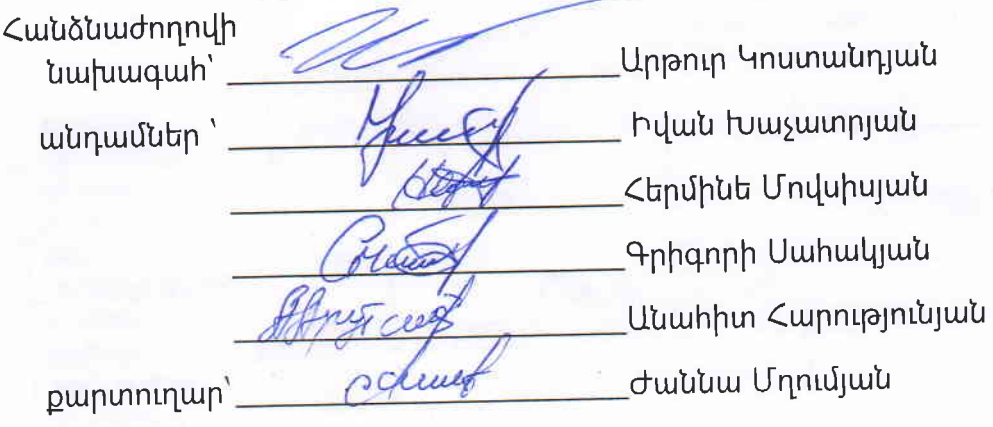 Հանձնաժողովի
նախագահ՝ Արթուր Կոստանդյան
անդամներ ՝ Իվան Խաչատրյան
Հերմինե Մովսիսյան
Գրիգորի Սահակյան
Անահիտ Հարությունյան
քարտուղար՝ Ժաննա Մղումյան